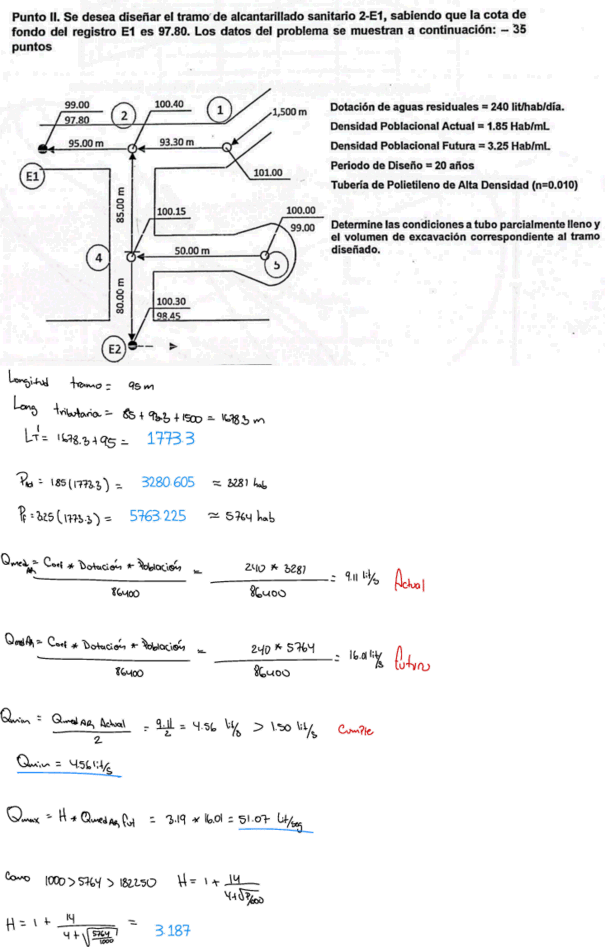 Punto II. Se desea diseñar el tramo de alcantarillado sanitario 2-E1, sabiendo que la cota de
fondo del registro E1 es 97.80. Los datos del problema se muestran a continuación: – 35
puntos
99.00
97.80
2
100.40
1
1,500 m
95.00 m
93.30 m
E1
101.00
85.00 m
100.15
100.00
99.00
4
50.00 m
5
80.00 m
100.30
98.45
E2
Dotación de aguas residuales = 240 lit/hab/día.
Densidad Poblacional Actual = 1.85 Hab/mL
Densidad Poblacional Futura = 3.25 Hab/mL
Periodo de Diseño = 20 años
Tubería de Polietileno de Alta Densidad (n=0.010)
Determine las condiciones a tubo parcialmente lleno y
el volumen de excavación correspondiente al tramo
diseñado.
Longitud tramo = 95 m
Long tributaria = 85 + 93.3 + 1500 = 1678.3 m
LT = 1678.3 + 95 = 1773.3
= 1.85 (1773.3) = 3280.605 ≈ 3281 hab
Pf = 3.25 (1773.3) = 5763.225 ≈ 5764 hab
Qmed AR = Coef * Dotación * Población / 86400 = 240 * 3281 / 86400 = 9.11 lit/s Actual
Qmed AR = Coef * Dotación * Población / 86400 = 240 * 5764 / 86400 = 16.01 lit/s Futuro
Qmin = Qmed AR Actual / 2 = 9.11 / 2 = 4.56 lit/s > 1.50 lit/s Cumple
Qmin = 4.56 lit/s
Qmax = H * Qmed AR fut = 3.19 * 16.01 = 51.07 lit/seg
Como 1000 > 5764 > 182250 H = 1 + 14 / 4+√P/1000
H = 1 + 14 / 4 + √5764/1000 = 3.187